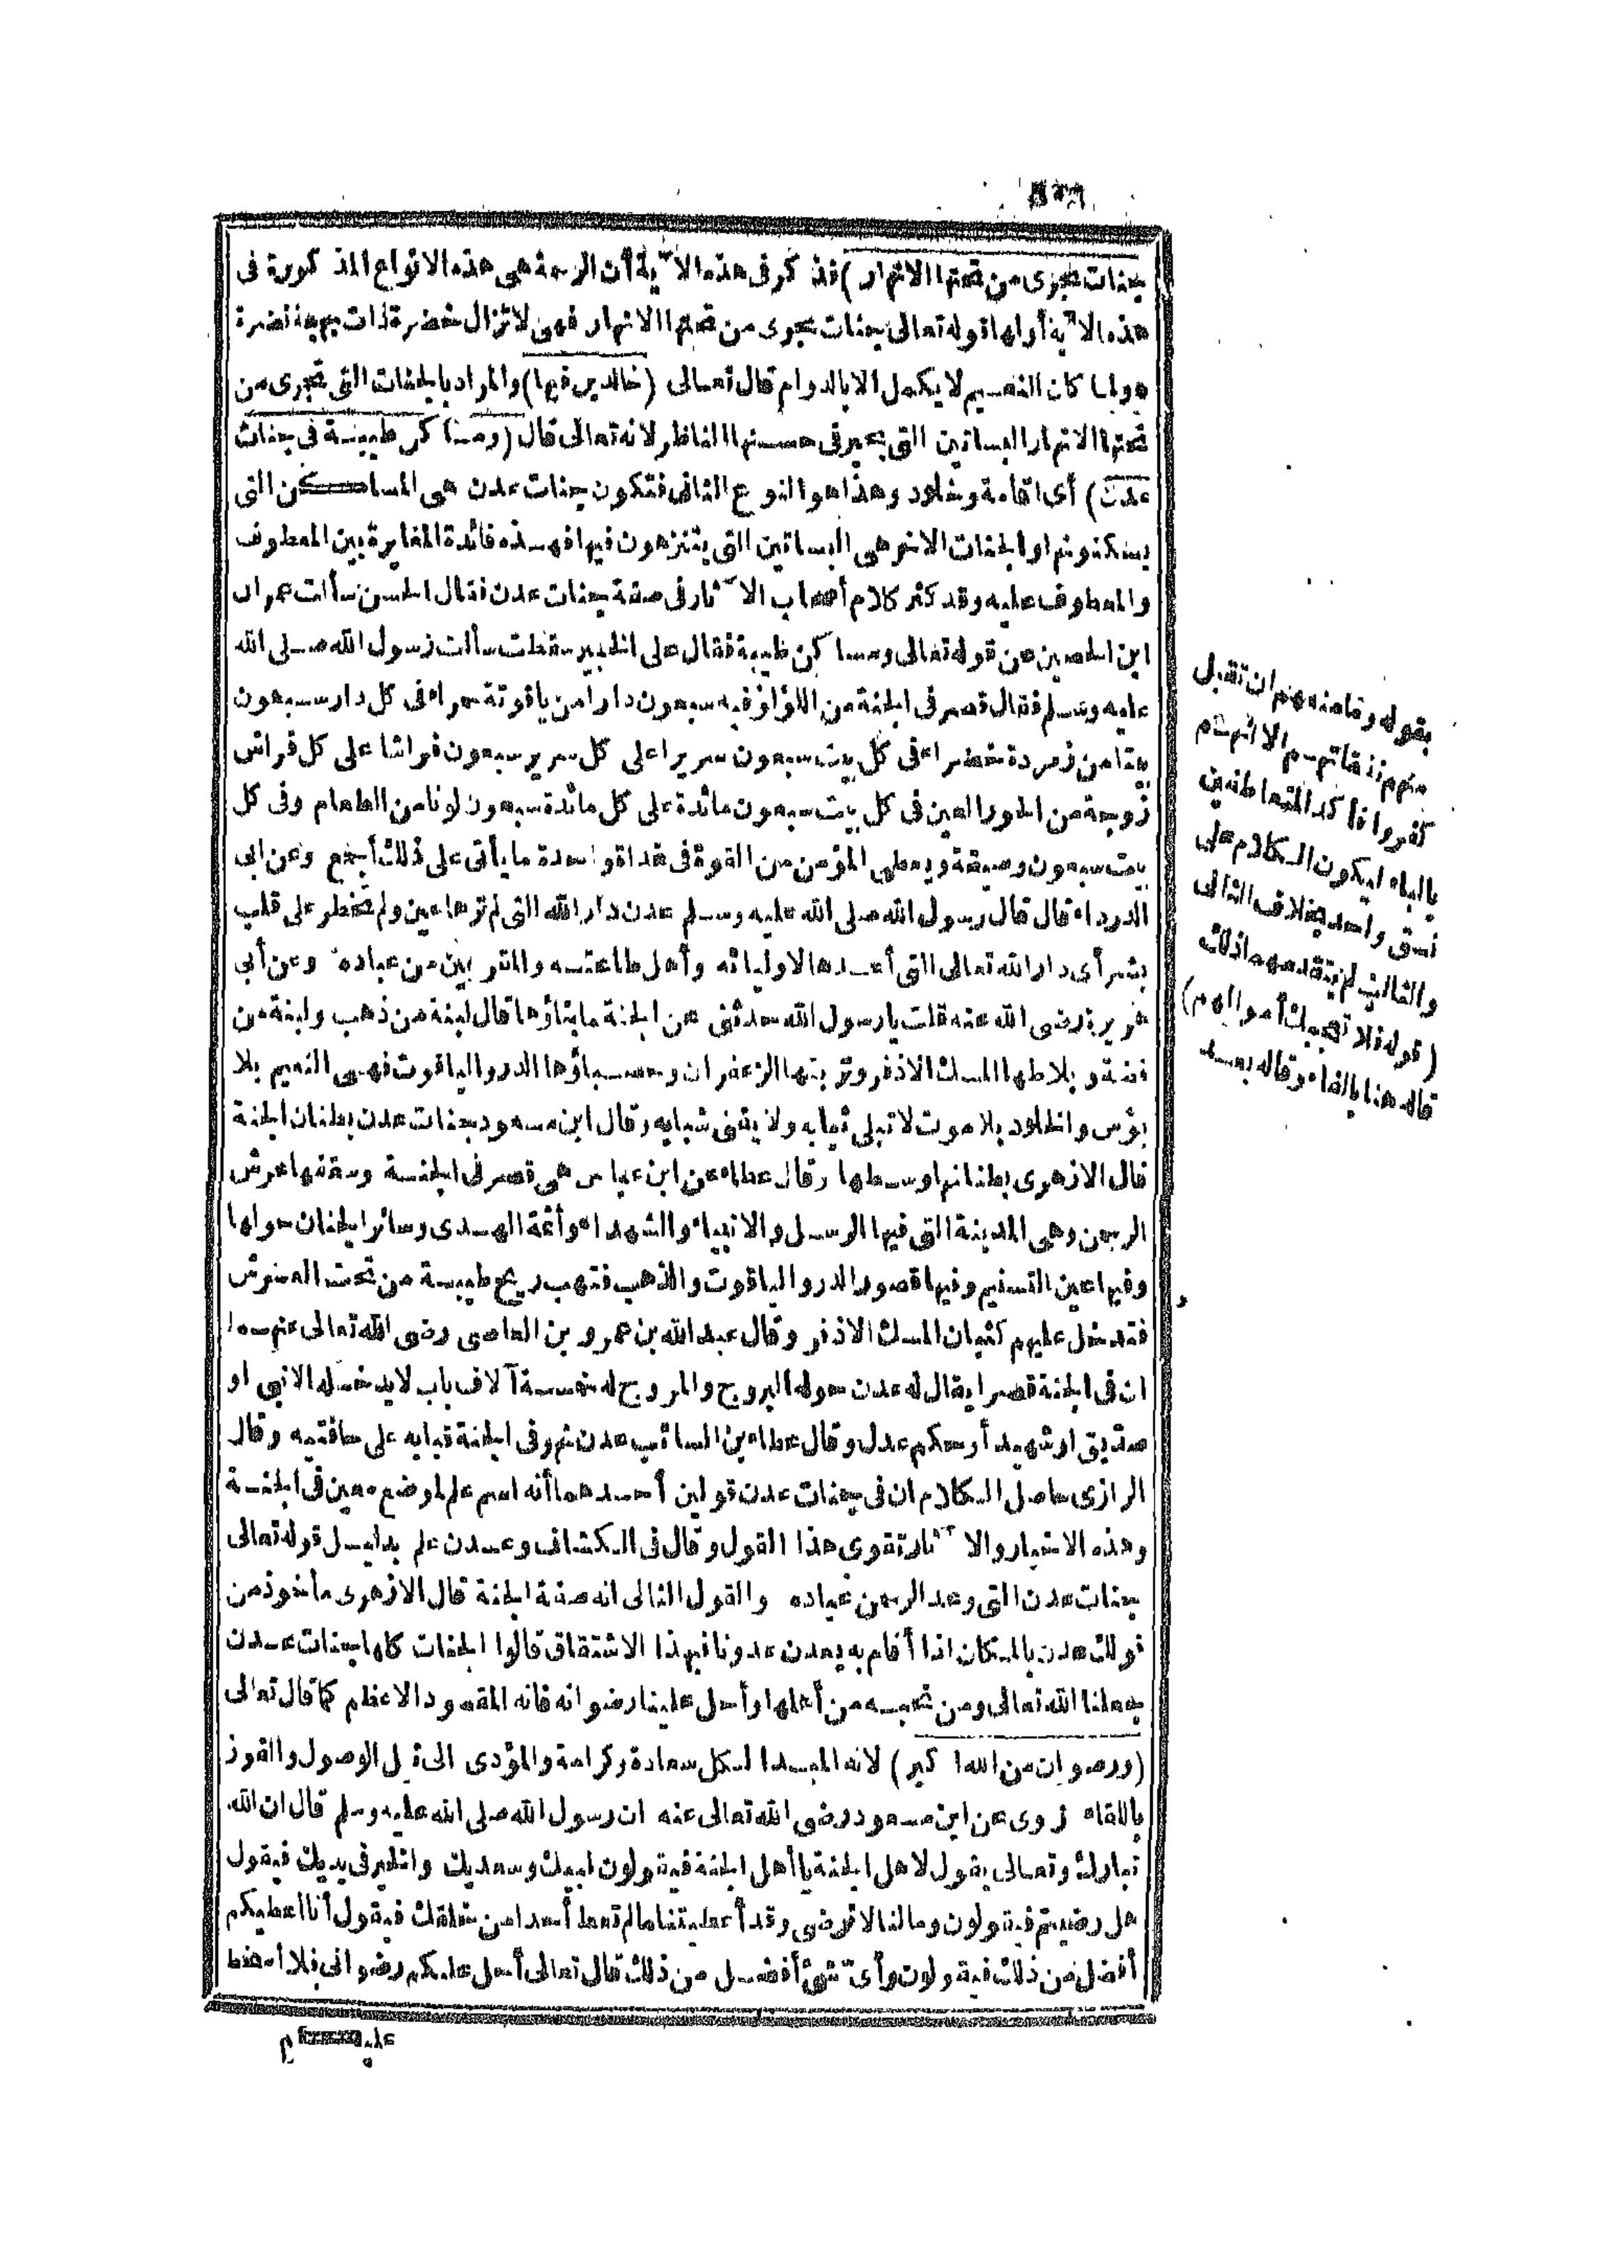 جنات تجرى من تحتها الانهار) فذكر فى هذه الآية أن الرحمة هى هذه الانواع المذكورة فى
هذه الآية أولها قوله تعالى جنات تجرى من تحتها الانهار فهى لا تزال خضرة ذات بهجة نضرة
ولما كان النعيم لا يكمل الا بالدوام قال تعالى (خالدين فيها) والمراد بالجنات التى تجرى من
تحتها الانهار البساتين التى يتحير فى حسنها الناظر لانه تعالى قال (ومساكن طيبة فى جنات
عدن) أى اقامة وخلود وهذا هو النوع الثانى فتكون جنات عدن هى المساكن التى
يسكنونها والجنات الاخر هى البساتين التى يتنزهون فيها فهذه فائدة المغايرة بين المعطوف
والمعطوف عليه وقد كثر كلام أصحاب الآثار فى صفة جنات عدن فقال الحسن سألت عمران
ابن الحصين عن قوله تعالى ومساكن طيبة فقال على الخبير سقطت سألت رسول الله صلى الله
عليه وسلم فقال قصر فى الجنة من اللؤلؤ فيه سبعون دارا من ياقوتة حمراء فى كل دار سبعون
بيتا من زمردة خضراء فى كل بيت سبعون سريرا على كل سرير سبعون فراشا على كل فراش
زوجة من الحور العين فى كل بيت سبعون مائدة على كل مائدة سبعون لونا من الطعام وفى كل
بيت سبعون وصيفة ويعطى المؤمن من القوة فى غداة واحدة ما يأتى على ذلك أجمع وعن ابى
الدرداء قال قال رسول الله صلى الله عليه وسلم عدن دار الله التى لم ترها عين ولم تخطر على قلب
بشر أى دار الله تعالى التى أعدها لاوليائه وأهل طاعته والمقربين من عباده وعن أبى
هريرة رضى الله عنه قلت يا رسول الله حدثنى عن الجنة ما بناؤها قال لبنة من ذهب ولبنة من
فضة وبلاطها المسك الاذفر وتربتها الزعفران وحصباؤها الدر والياقوت فهى النعيم بلا
بؤس والخلود بلا موت لا تبلى ثيابه ولا يفنى شبابه وقال ابن مسعود جنات عدن بطنان الجنة
قال الازهرى بطنانها وسطها وقال عطاء عن ابن عباس هى قصر فى الجنة وسقفها عرش
الرحمن وهى المدينة التى فيها الرسل والانبياء والشهداء وأئمة الهدى وسائر الجنان حولها
وفيها عين التسنيم وفيها قصور الدر والياقوت والذهب فتهب ريح طيبة من تحت العرش
فتدخل عليهم كثبان المسك الاذفر وقال عبد الله بن عمرو بن العاصى رضى الله تعالى عنهما
ان فى الجنة قصرا يقال له عدن حوله البروج والمروج له خمسة آلاف باب لا يدخله الا نبى او
صديق او شهيد أو حكم عدل وقال عطاء بن السائب عدن نهر فى الجنة قبابه على حافتيه وقال
الرازى حاصل الكلام ان فى جنات عدن قولين أحدهما أنه اسم علم لموضع معين فى الجنة
وهذه الاخبار والآثار تقوى هذا القول وقال فى الكشاف وعدن علم بدليل قوله تعالى
جنات عدن التى وعد الرحمن عباده والقول الثانى انه صفة الجنة قال الازهرى مأخوذ من
قولك عدن بالمكان اذا أقام به يعدن عدونا فبهذا الاشتقاق قالوا الجنات كلها جنات عدن
جعلنا الله تعالى ومن نحبه من أهلها وأحل علينا رضوانه فانه المقصود الاعظم كما قال تعالى
(ورضوان من الله اكبر) لانه المبدأ لكل سعادة وكرامة والمؤدى الى نيل الوصول والفوز
باللقاء روى عن ابن مسعود رضى الله تعالى عنه ان رسول الله صلى الله عليه وسلم قال ان الله
تبارك وتعالى يقول لاهل الجنة يا أهل الجنة فيقولون لبيك وسعديك والخير فى يديك فيقول
هل رضيتم فيقولون وما لنا لا نرضى وقد أعطيتنا ما لم تعط أحدا من خلقك فيقول أنا أعطيكم
أفضل من ذلك فيقولون وأى شئ أفضل من ذلك قال تعالى أحل عليكم رضوانى فلا أسخط
عليكم
بقوله وما منعهم ان تقبل
منهم نفقاتهم الا انهم
كفروا فأكد المتعاطفين
بالباء ليكون الكلام على
نسق واحد بخلاف الثانى
والثالث لم يتقدمهما ذلك
(قوله فلا تعجبك أموالهم)
قاله هنا بالفاء وقاله بعد